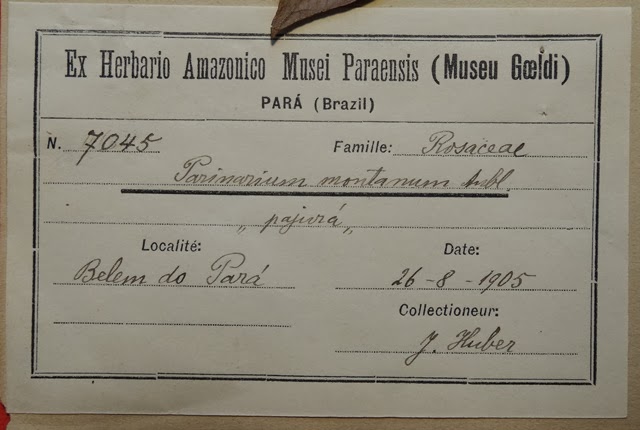 Ex Herbario Amazonico Musei Paraensis (Museu Gœldi)
PARÁ (Brazil)
N. 7045 Famille: Rosaceae
Parinarium montanum Aubl.
„pajurá„
Localité: Date:
Belem do Pará 26-8-1905
Collectioneur:
J. Huber